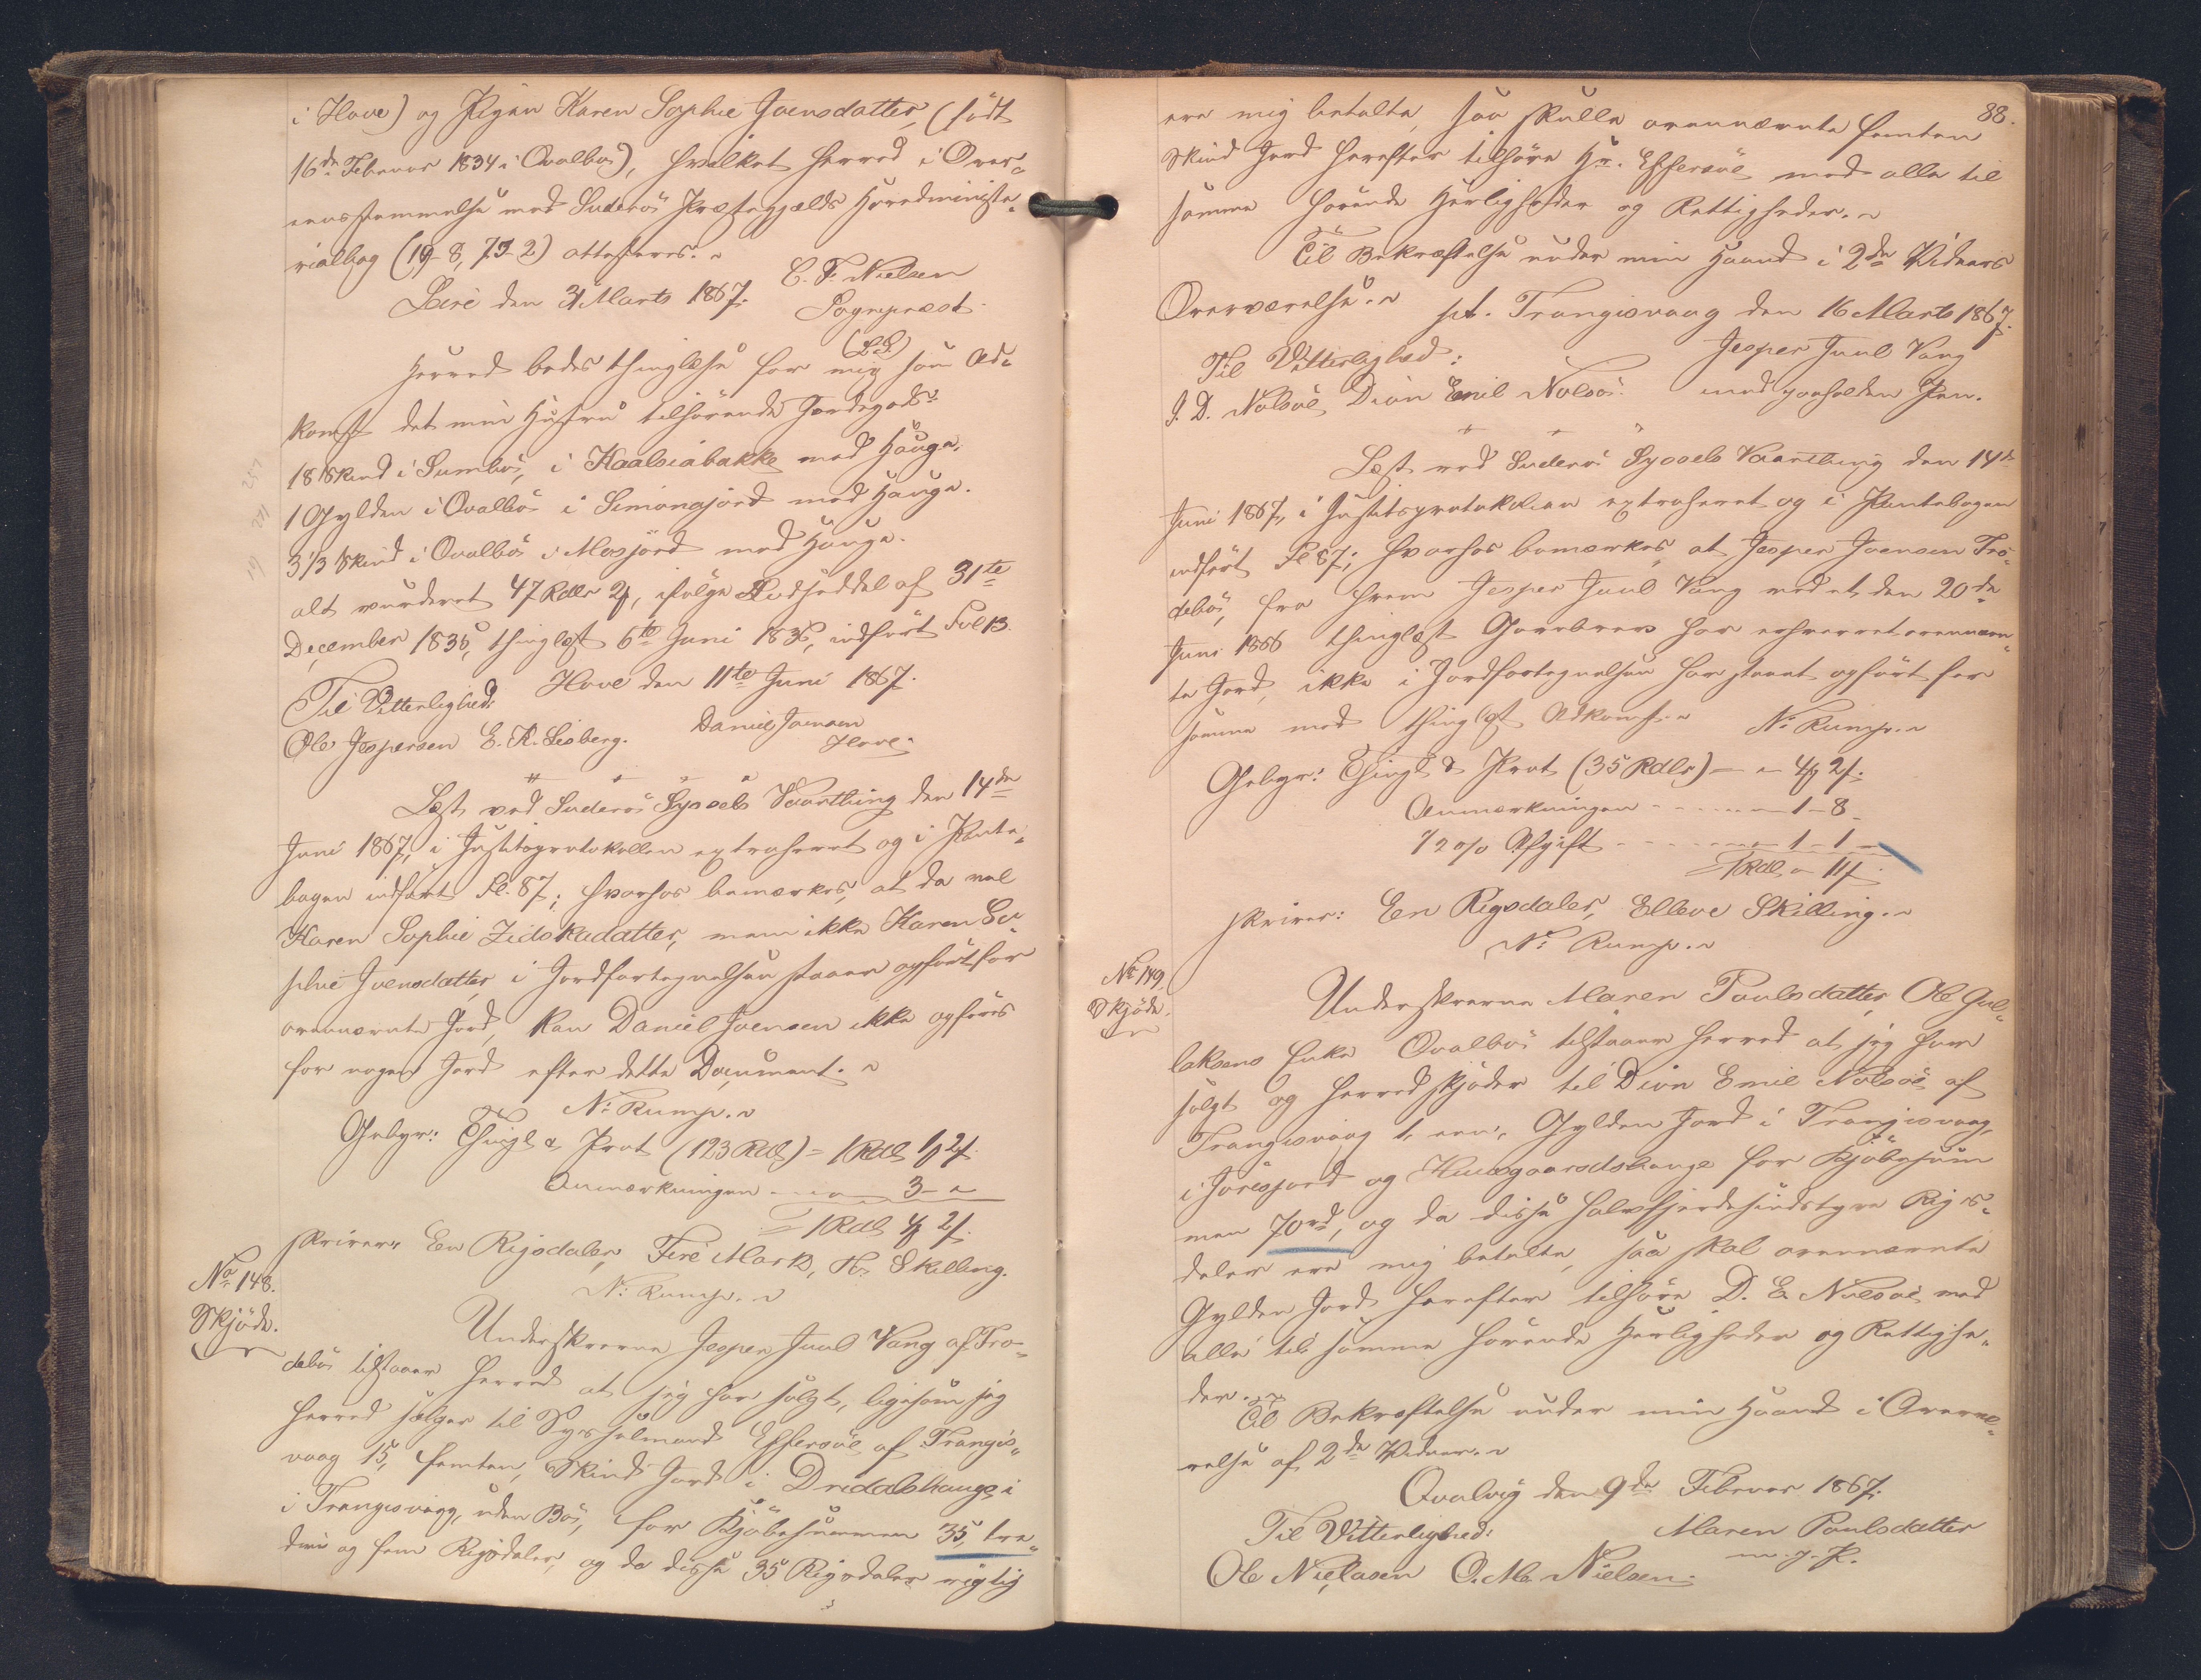 i Hove) og Pigen Karen Sophie Joensdatter, (født
16de Februar 1834 i Qvalbø), hvilket herved i Over-
eensstemmelse med Suderø Præstegjælds Hovedministe-
rialbog (19-8, 73-2) attesteres.
Sere den 31 Marts 1867. C. F. Nielsen
Sognepræst.
(L.S.)
Herved bedes thinglæse for mig som Ad-
komst det min Hustru tilhørende Jordegods:
18 Skind i Sumbø, i Haalsiabakke med Hauge.
1 Gylden i Qvalbø i Simonajord med Hauge.
3 1/3 Skind i Qvalbø i Mosjord med Hauge.
alt vurderet 47 Rdlr 2 , ifølge Lodseddel af 31te
December 1835, thinglæst 6te Juni 1836, indført Fol 13.
Hove den 11te Juni 1867.
Til Vitterlighed:
Ole Jespersen E. K. Lisberg. Daniel Joensen
Hove.
Læst ved Suderø Syssels Vaarthing den 14de
Juni 1867, i Justitsprotokollen extraheret og i Pante-
bogen indført Fl. 87; hvorhos bemærkes, at da vel
Karen Sophie Zidskadatter, men ikke Karen So-
phie Joensdatter i Jordfortegnelsen staaer opført for
ovennævnte Jord, kan Daniel Joensen ikke opføres
for nogen Jord efter dette Document.
N: Rump.
Gebyr: Thingl & Prot (123 Rdl) = 1 Rdl 1 2
Anmærkningen 3 -
= 1 Rdl 4 2
skriver En Rigsdaler, Fire Mark, To Skilling.
N: Rump.
No 148.
Skjøde.
Underskrevne Jesper Juul Vang af Fro-
debø tilstaaer herved at jeg har solgt, ligesom jeg
herved sælger til Sysselmand Effersøe af Trangis-
vaag 15, femten, Skind Jord i Dredalshauge i
i Trangisvaag, uden Bø, for Kjøbesummen 35, tre-
dive og fem Rigsdaler, og da disse 35 Rigsdaler rigtig
88.
ere mig betalte, saa skulle ovennævnte femten
Skind Jord herefter tilhøre Hr. Effersøe med alle til
samme hørende Herligheder og Rettigheder.
Til Bekræftelse under min Haand i 2de Vidners
Overværelse. pt. Trangisvaag den 16 Marts 1867.
Til Vitterlighed: Jesper Juul Vang
J. D. Nolsøe Dion Emil Nolsøe. med paaholden Pen.
Læst ved Suderø Syssels Vaarthing den 14de
Juni 1867, i Justitsprotokollen extraheret og i Pantebogen
indført Fl 87; hvorhos bemærkes, at Jesper Joensen Fro-
debø, fra hvem Jesper Juul Vang ved et den 20de
Juni 1866 thinglæst Gavebrev har erhvervet ovennævn-
te Jord, ikke i Jordfortegnelsen har staaet opført for
samme med thinglæst Adkomst. N: Rump.
Gebyr: Thingl & Prot (35 Rdlr) - 4 2
Anmærkningen 1 - 8
1/2 % Afgift 1 - 1
= 1 Rdl - 11
skriver: En Rigsdaler, Elleve Skilling.
N: Rump.
No 149.
Skjøde.
Underskrevne Maren Poulsdatter, Ole Gul-
laksens Enke Qvalbø tilstaaer herved at jeg har
solgt og herved skjøder til Dion Emil Nolsøe af
Trangisvaag 1, een, Gylden Jord i Trangisvaag,
i Jøresjord og Huusgaardshauge for Kjøbesum-
men 70rd, og da disse halvfjerdesindstyve Rigs-
daler ere mig betalte, saa skal ovennævnte
Gylden Jord herefter tilhøre D. E. Nolsøe med
alle til samme hørende Herligheder og Rettighe-
der.
Til Bekræftelse under min Haand i Overvæ-
relse af 2de Vidner.
Qvalvig den 9de Februar 1867.
Til Vitterlighed: Maren Poulsdatter
Ole Nielasen O. M. Nielsen. m. p. P.